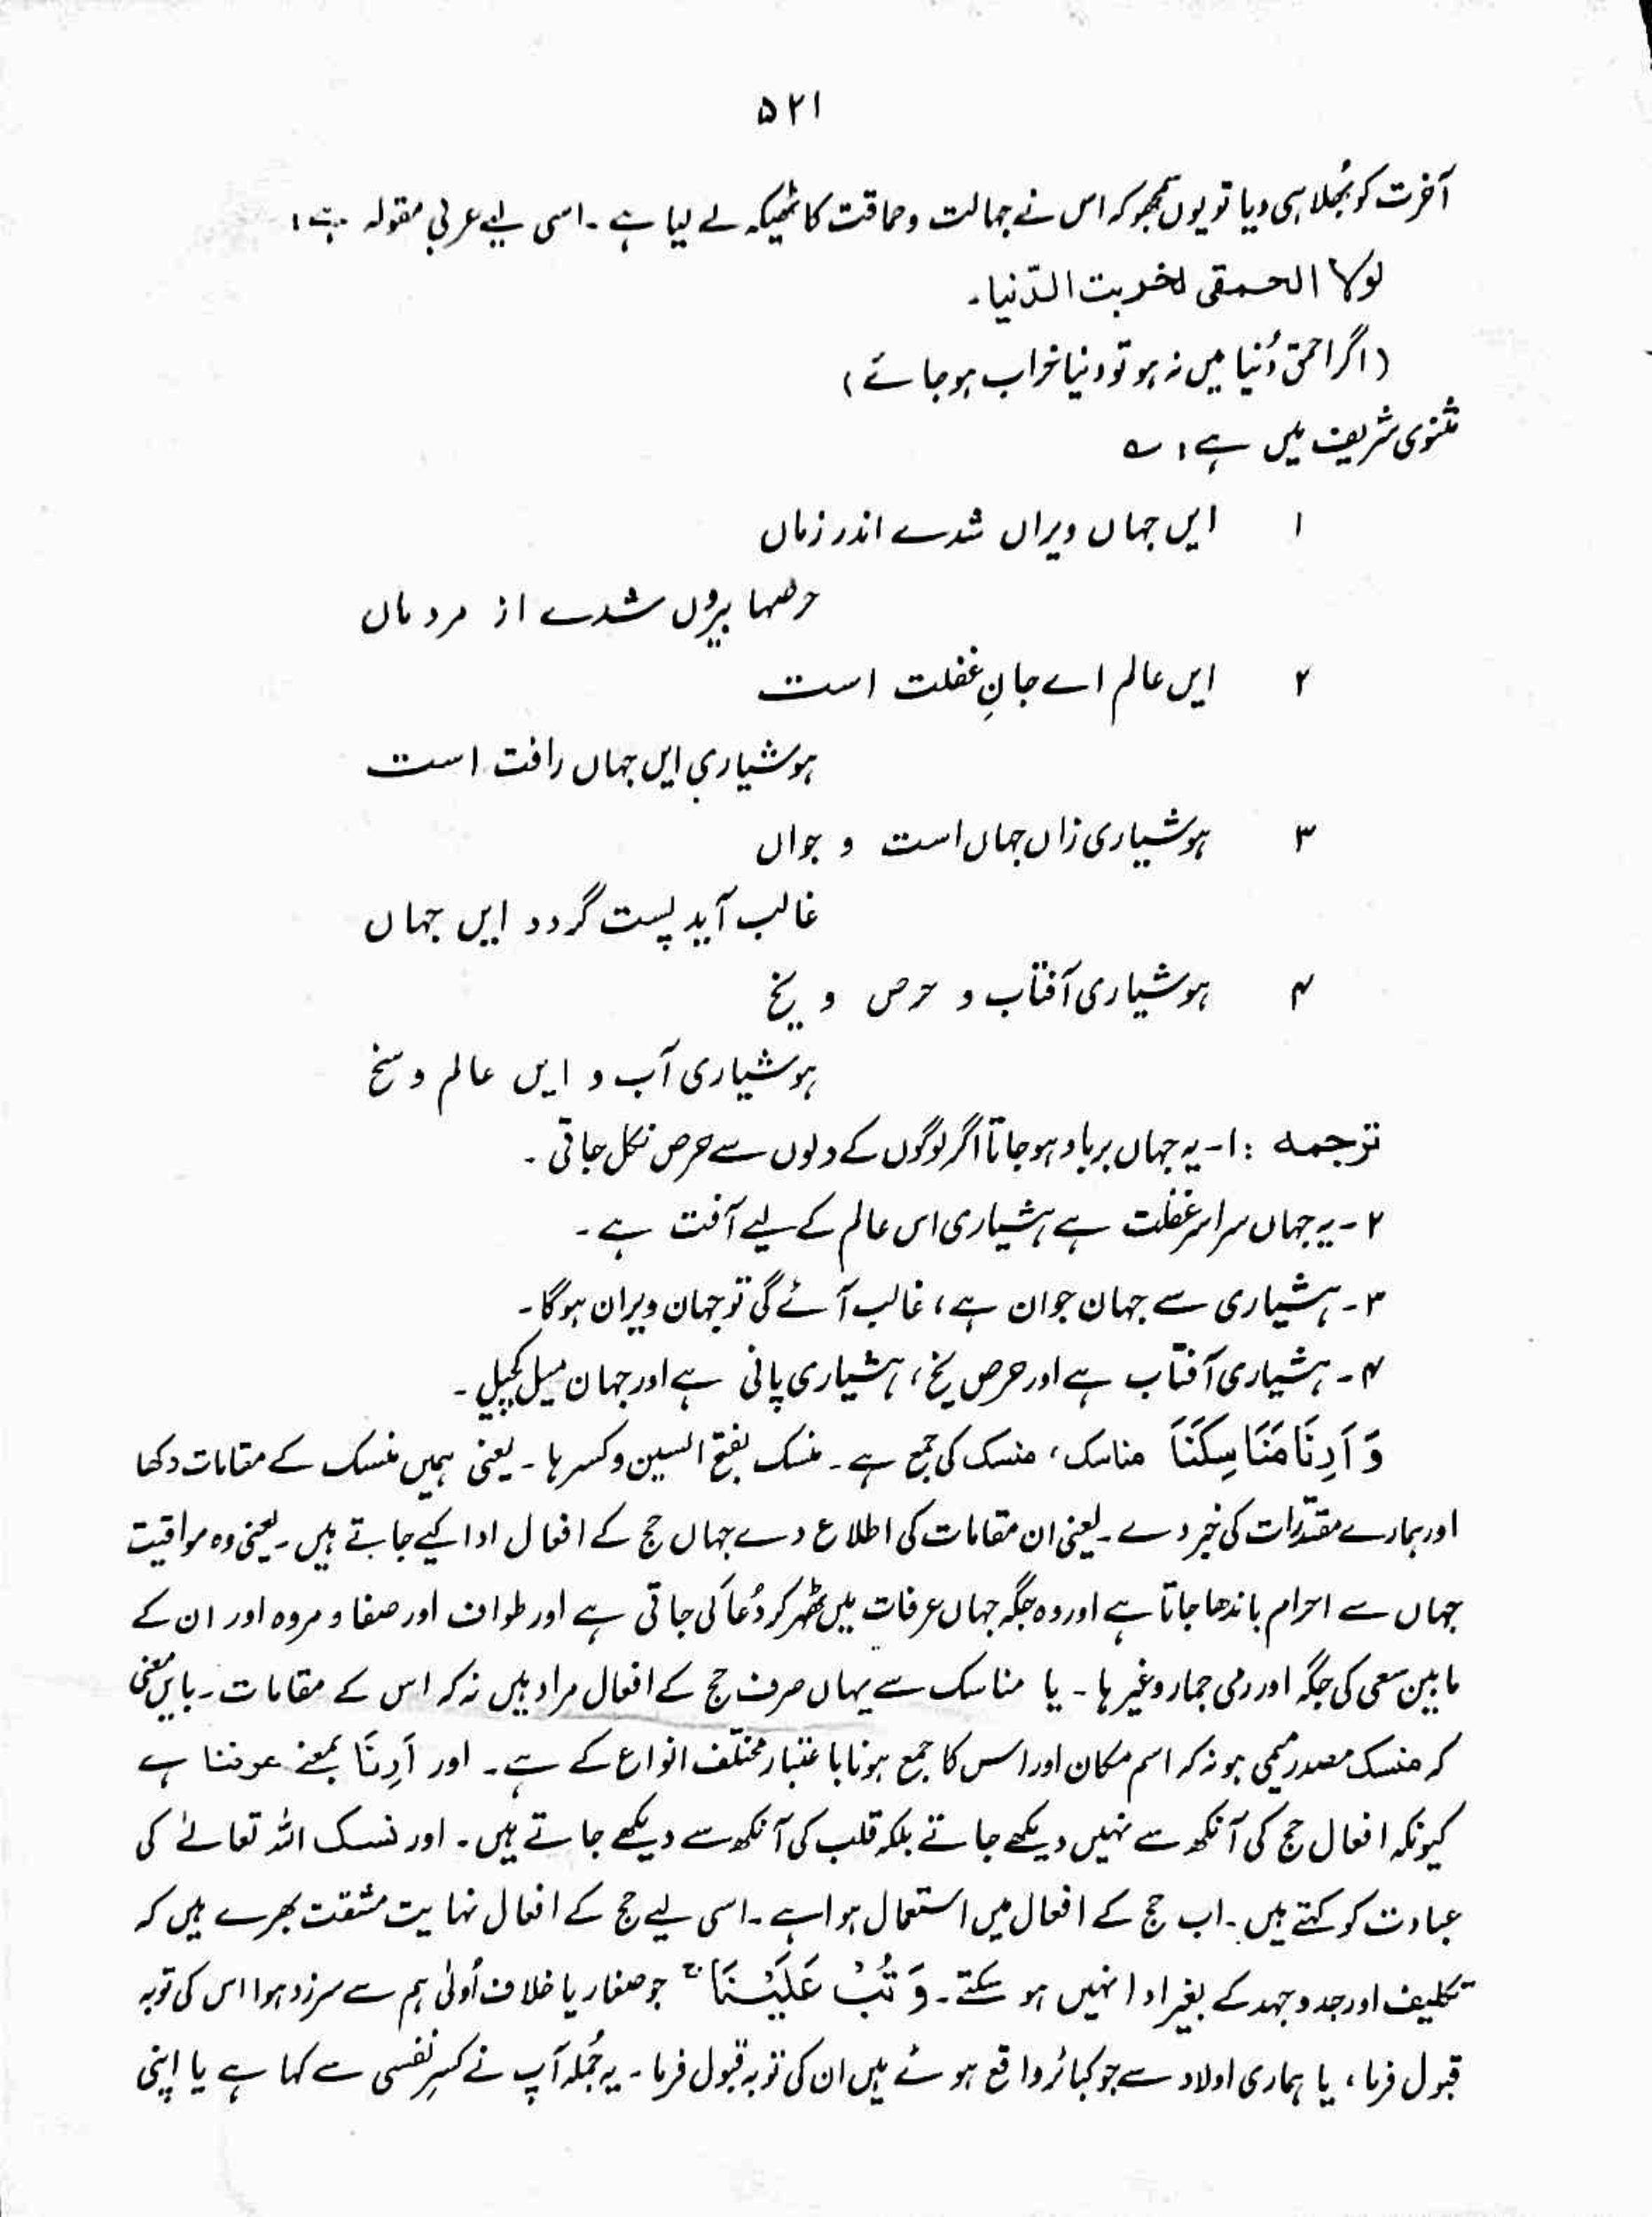 ۵۲۱
آخرت کو بُھلا ہی دیا تو یوں سمجھو کہ اس نے جہالت و حماقت کا ٹھیکہ لے لیا ہے ۔ اسی لیے عربی مقولہ ہے :
لولا الحمقی لخربت الدّنیا ۔
( اگر احمق دُنیا میں نہ ہو تو دنیا خراب ہو جائے )
مثنوی شریف میں ہے : ؎
۱ ایں جہاں ویراں شدے اندر زماں
حرصہا بیروں شدے از مردماں
۲ ایں عالم اے جانِ غفلت است
ہوشیاریِ ایں جہاں را فت است
۳ ہوشیاری زاں جہاں است و جواں
غالب آید پست گردد ایں جہاں
۴ ہوشیاری آفتاب و حرص و یخ
ہوشیاری آب و ایں عالم و سخ
ترجمہ : ۱ - یہ جہاں برباد ہو جاتا اگر لوگوں کے دلوں سے حرص نکل جاتی ۔
۲ - یہ جہاں سراسر غفلت ہے ہشیاری اس عالم کے لیے آفت ہے ۔
۳ - ہشیاری سے جہان جوان ہے ، غالب آئے گی تو جہان ویران ہوگا ۔
۴ - ہشیاری آفتاب ہے اور حرص یخ ، ہشیاری پانی ہے اور جہان میل کچیل ۔
وَ اَرِنَا مَنَاسِكَنَا مناسک ، منسک کی جمع ہے ۔ منسک بفتح السین و کسرہا ۔ یعنی ہمیں منسک کے مقامات دکھا
اور ہمارے مقدّرات کی خبر دے ۔ یعنی ان مقامات کی اطلاع دے جہاں حج کے افعال ادا کیے جاتے ہیں ۔ یعنی وہ مواقیت
جہاں سے احرام باندھا جاتا ہے اور وہ جگہ جہاں عرفات میں ٹھہر کر دُعا کی جاتی ہے اور طواف اور صفا و مروہ اور ان کے
مابین سعی کی جگہ اور رمی جمار وغیرہا ۔ یا مناسک سے یہاں صرف حج کے افعال مراد ہیں نہ کہ اس کے مقامات ۔ بایں معنی
کہ منسک مصدر میمی ہو نہ کہ اسم مکان اور اس کا جمع ہونا باعتبار مختلف انواع کے ہے ۔ اور اَرِنَا بمعنے عرفنا ہے
کیونکہ افعال حج کی آنکھ سے نہیں دیکھے جاتے بلکہ قلب کی آنکھ سے دیکھے جاتے ہیں ۔ اور نسک اللہ تعالےٰ کی
عبادت کو کہتے ہیں ۔ اب حج کے افعال میں استعمال ہوا ہے ۔ اسی لیے حج کے افعال نہایت مشقت بھرے ہیں کہ
تکلیف اور جدوجہد کے بغیر ادا نہیں ہو سکتے ۔ وَ تُبْ عَلَيْنَا ج جو صغار یا خلاف اُولیٰ ہم سے سرزد ہوا اس کی توبہ
قبول فرما ، یا ہماری اولاد سے جو کبائر واقع ہوئے ہیں ان کی توبہ قبول فرما ۔ یہ جُملہ آپ نے کسرِ نفسی سے کہا ہے یا اپنی